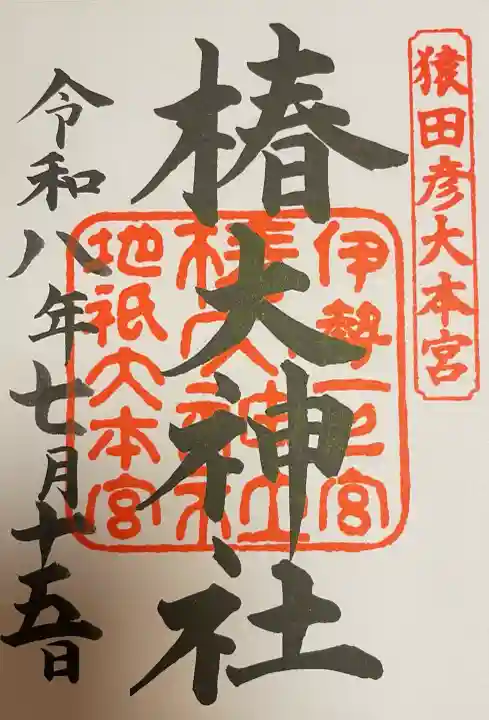 猿田彦大本宮
椿大神社
伊勢一之宮
椿大神社
地祇大本宮
令和八年七月十五日